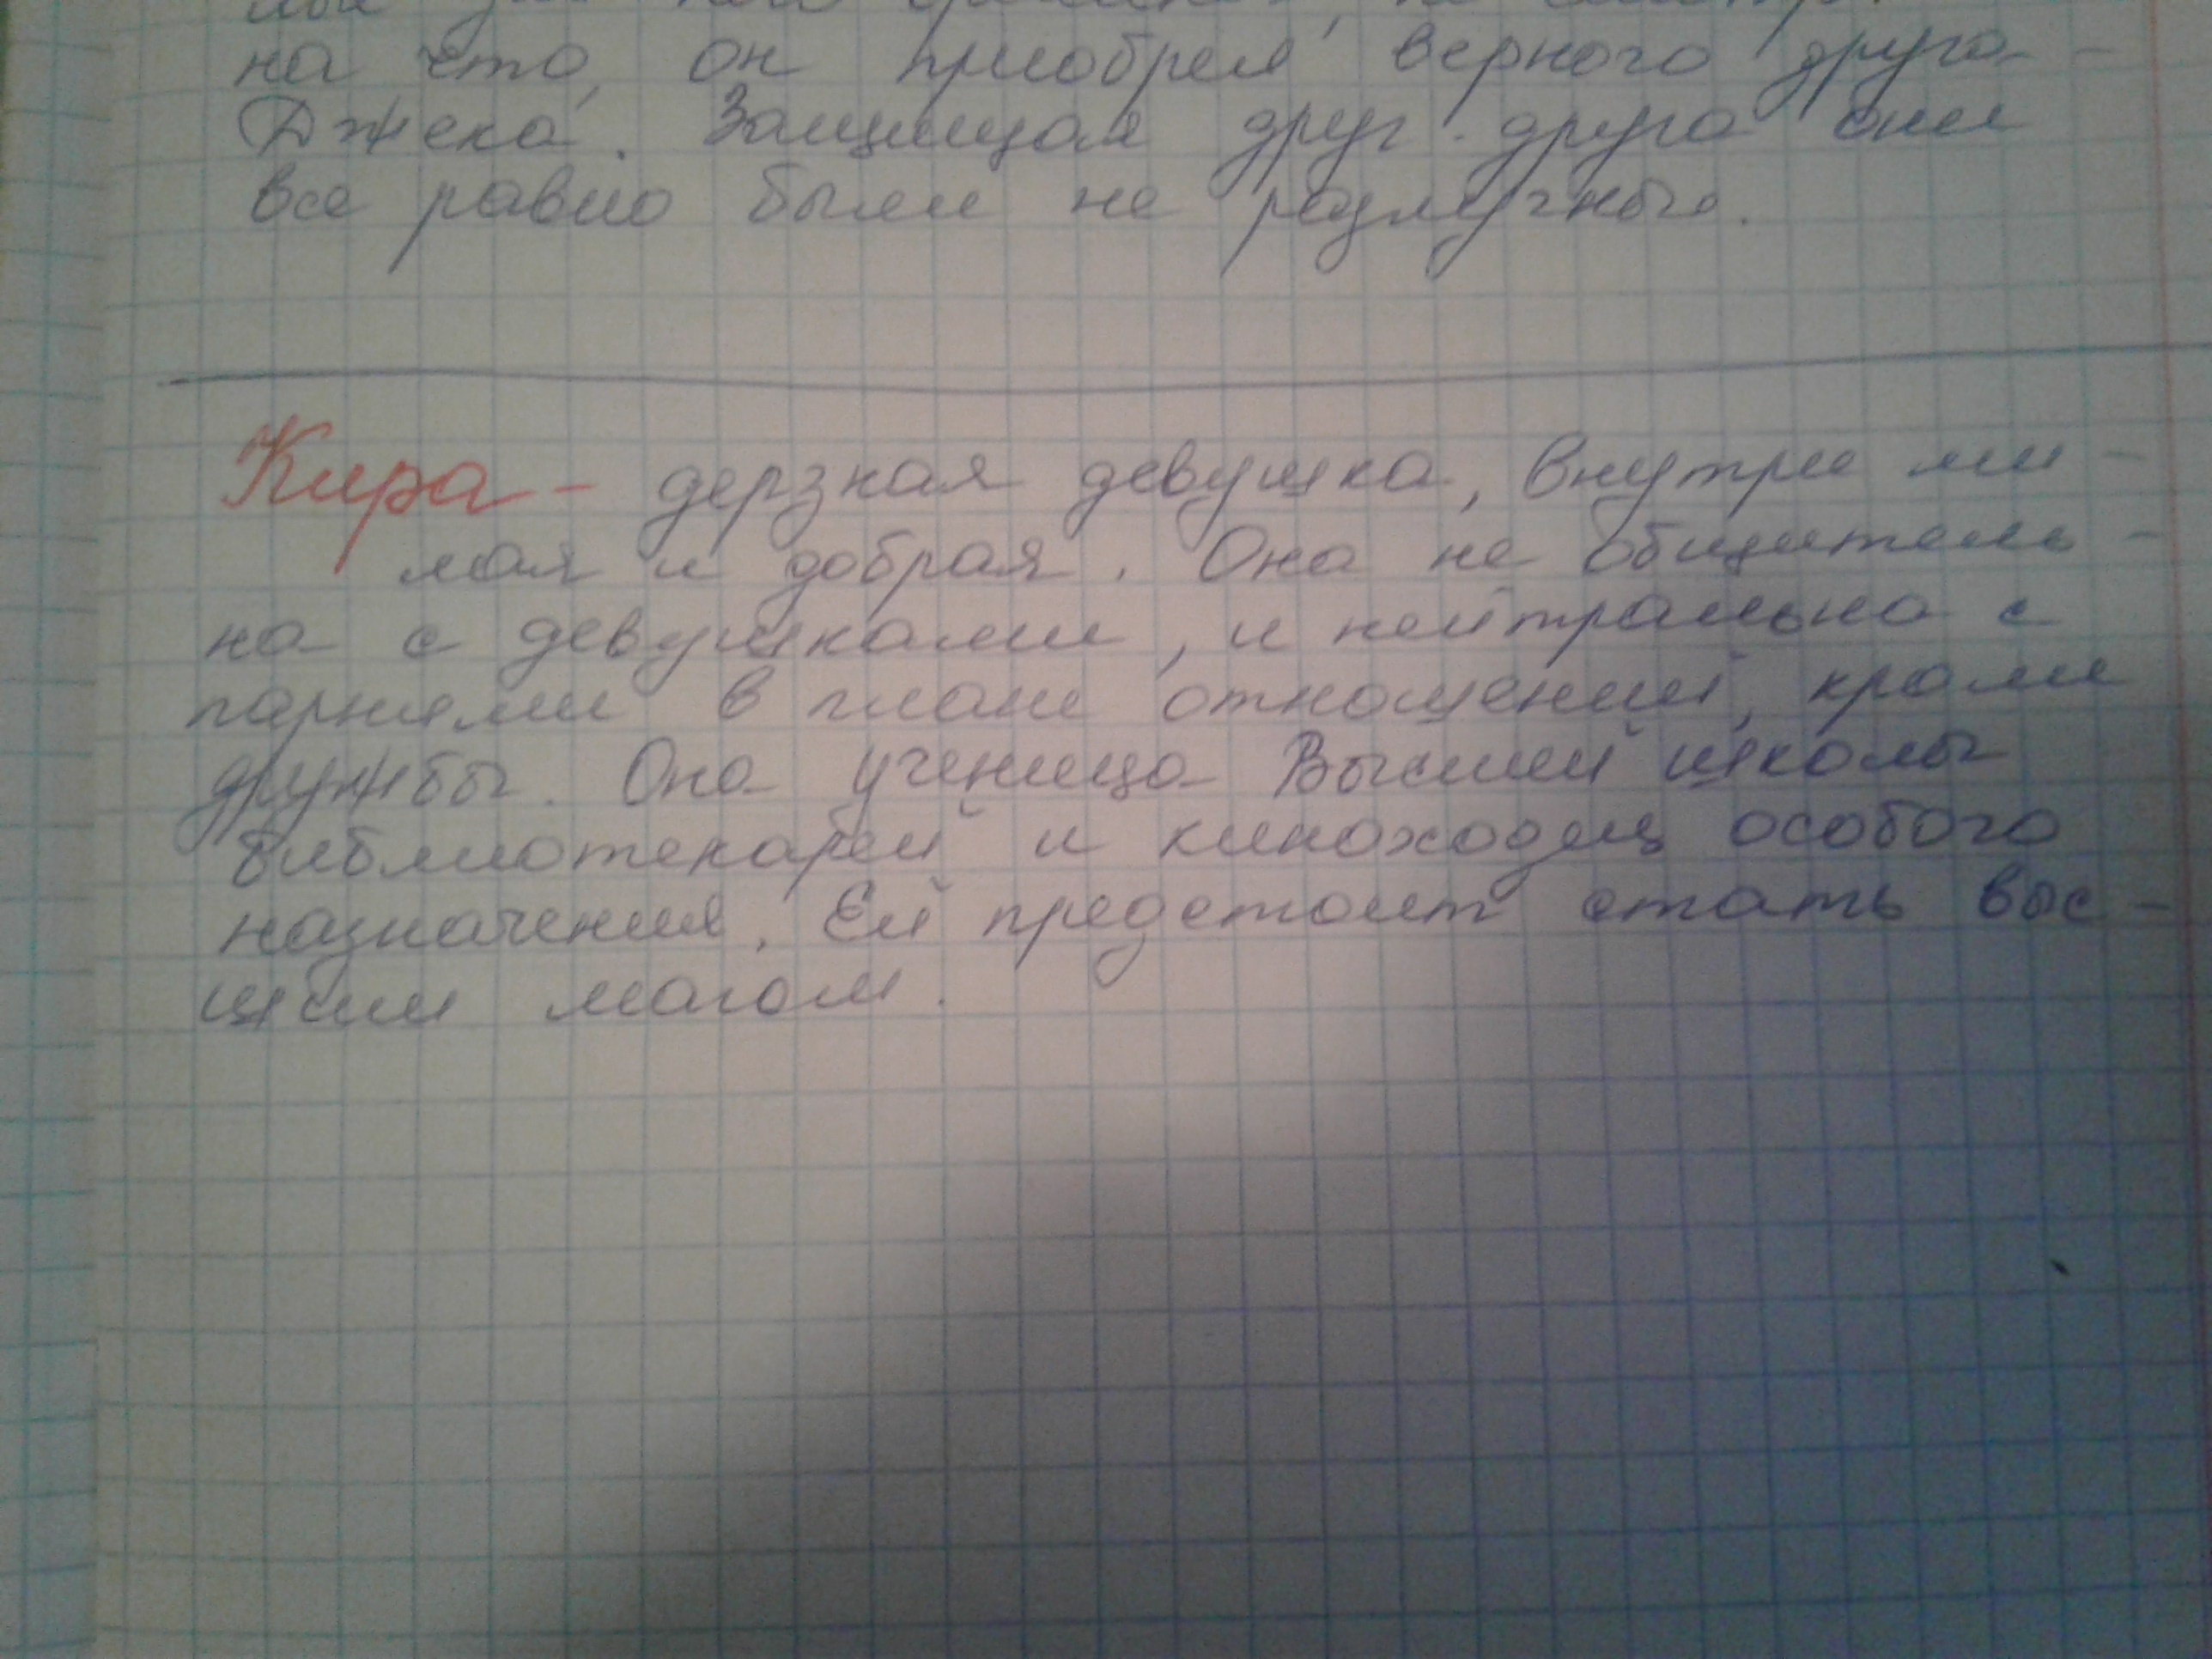 на что, он приобрел верного друга -
Джека. Защищая друг-друга они
все равно были не разлучны.
Кира - дерзкая девушка, внутри ми -
лая и добрая. Она не общитель -
на с девушками, и нейтральна с
парнями в плане отношений, кроми
дружбы. Она ученица Высшей школы
библиотекарей и киноходец особого
назначения. Ей предстоит стать выс -
шим магом.